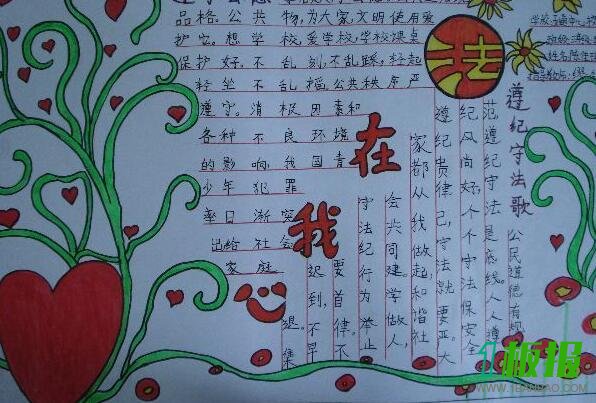 品格.公共 物,为大家,文明使用爱
护它。想学校,爱学校,学校课桌
保护好,不乱刻,不乱踩。轻起
轻坐不乱摇,公共秩序严
遵守。消极因素和
各种不良环境
的影响,我国青
少年犯罪
率日渐突
出给社会
家庭
法
在
我
心
学校:
班级:
姓名:
遵纪守法歌
公民道德有规
范遵纪守法是底线。人人遵
纪风尚好,个个守法保安全
遵纪贵律己,守法就要严。大
家都从我做起,和谐社
会共同建学做人,
守法纪行为举止
要首律。不
迟到,不早
退。集
板报